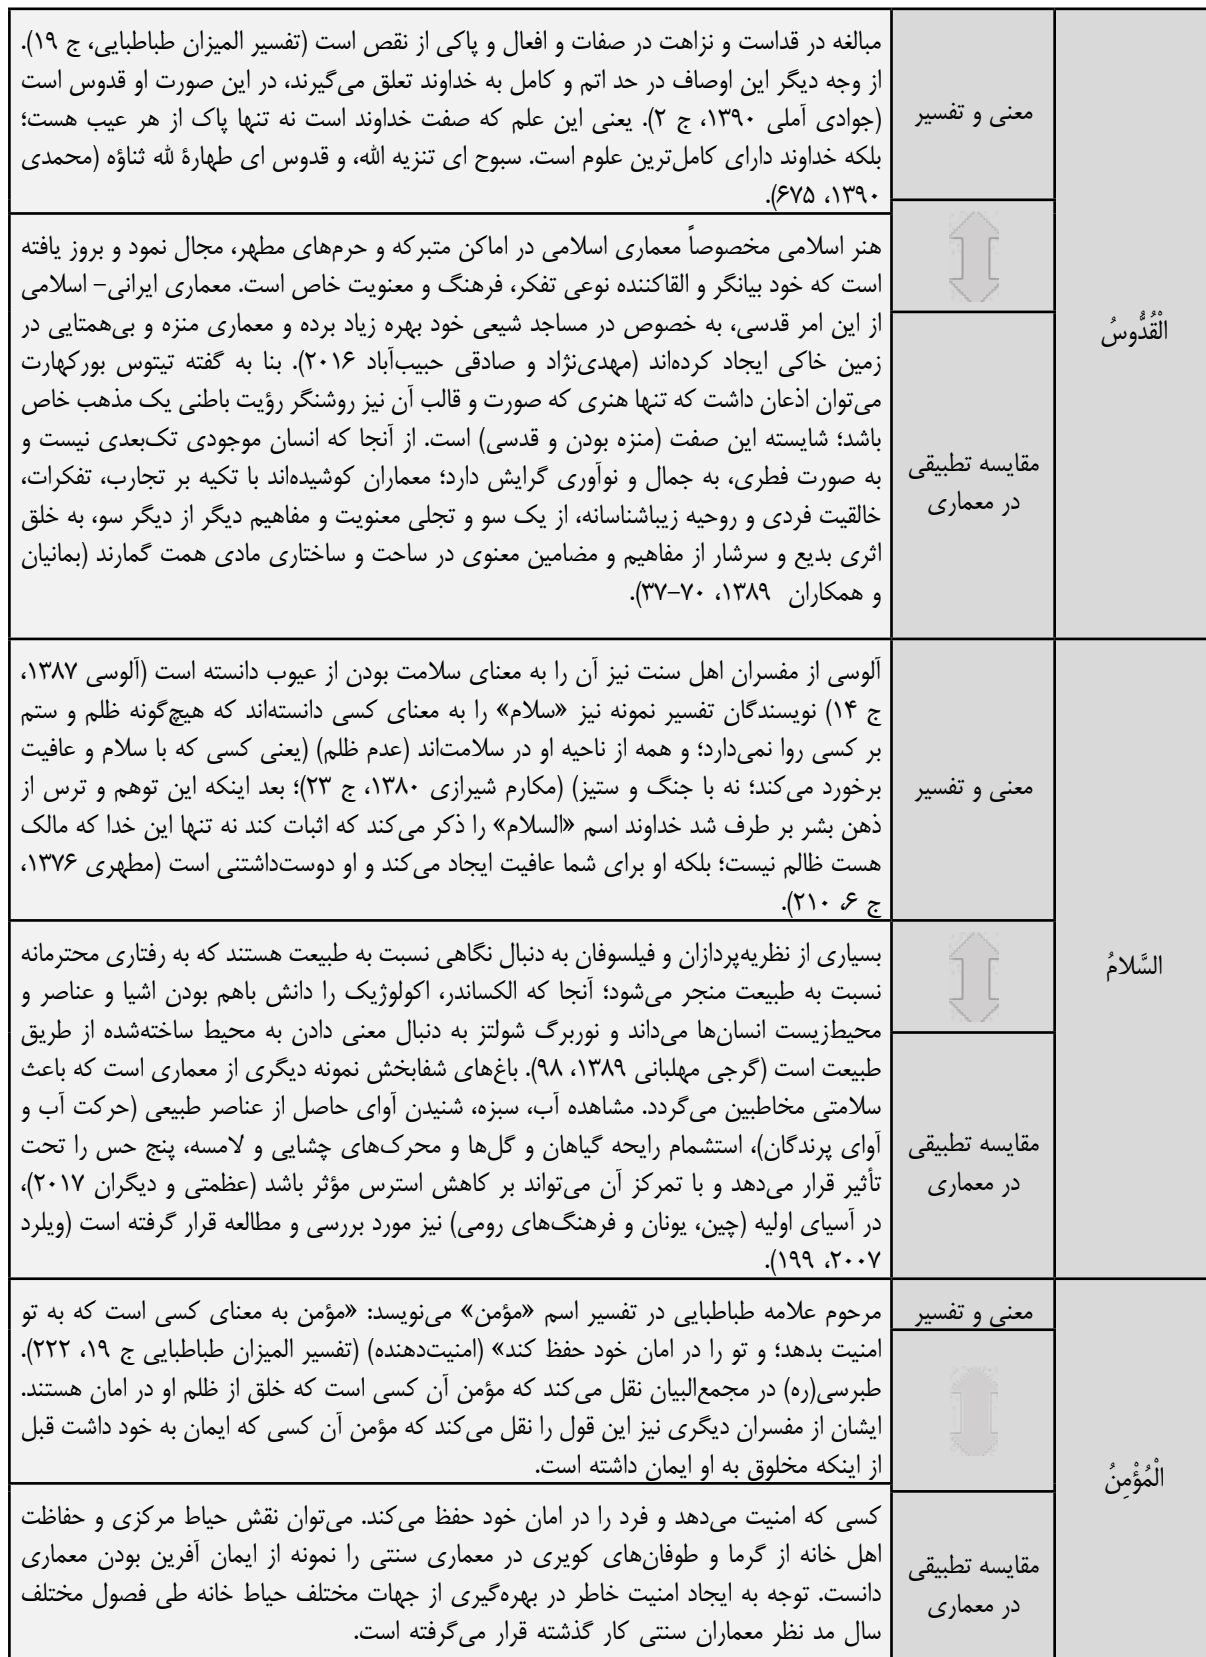 الْقُدُّوسُ
معنی و تفسیر
مبالغه در قداست و نزاهت در صفات و افعال و پاکی از نقص است (تفسیر المیزان طباطبایی، ج ۱۹).
از وجه دیگر این اوصاف در حد اتم و کامل به خداوند تعلق می‌گیرند، در این صورت او قدوس است
(جوادی آملی ۱۳۹۰، ج ۲). یعنی این علم که صفت خداوند است نه تنها پاک از هر عیب هست؛
بلکه خداوند دارای کامل‌ترین علوم است. سبوح ای تنزیه الله، و قدوس ای طهارهٔ لله ثناؤه (محمدی
۱۳۹۰، ۶۷۵).
مقایسه تطبیقی
در معماری
هنر اسلامی مخصوصاً معماری اسلامی در اماکن متبرکه و حرم‌های مطهر، مجال نمود و بروز یافته
است که خود بیانگر و القاکننده نوعی تفکر، فرهنگ و معنویت خاص است. معماری ایرانی- اسلامی
از این امر قدسی، به خصوص در مساجد شیعی خود بهره زیاد برده و معماری منزه و بی‌همتایی در
زمین خاکی ایجاد کرده‌اند (مهدی‌نژاد و صادقی حبیب‌آباد ۲۰۱۶). بنا به گفته تیتوس بورکهارت
می‌توان اذعان داشت که تنها هنری که صورت و قالب آن نیز روشنگر رؤیت باطنی یک مذهب خاص
باشد؛ شایسته این صفت (منزه بودن و قدسی) است. از آنجا که انسان موجودی تک‌بعدی نیست و
به صورت فطری، به جمال و نوآوری گرایش دارد؛ معماران کوشیده‌اند با تکیه بر تجارب، تفکرات،
خالقیت فردی و روحیه زیباشناسانه، از یک سو و تجلی معنویت و مفاهیم دیگر از دیگر سو، به خلق
اثری بدیع و سرشار از مفاهیم و مضامین معنوی در ساحت و ساختاری مادی همت گمارند (بمانیان
و همکاران ۱۳۸۹، ۷۰-۳۷).
السَّلامُ
معنی و تفسیر
آلوسی از مفسران اهل سنت نیز آن را به معنای سلامت بودن از عیوب دانسته است (آلوسی ۱۳۸۷،
ج ۱۴) نویسندگان تفسیر نمونه نیز «سلام» را به معنای کسی دانسته‌اند که هیچ‌گونه ظلم و ستم
بر کسی روا نمی‌دارد؛ و همه از ناحیه او در سلامت‌اند (عدم ظلم) (یعنی کسی که با سلام و عافیت
برخورد می‌کند؛ نه با جنگ و ستیز) (مکارم شیرازی ۱۳۸۰، ج ۲۳)؛ بعد اینکه این توهم و ترس از
ذهن بشر بر طرف شد خداوند اسم «السلام» را ذکر می‌کند که اثبات کند نه تنها این خدا که مالک
هست ظالم نیست؛ بلکه او برای شما عافیت ایجاد می‌کند و او دوست‌داشتنی است (مطهری ۱۳۷۶،
ج ۶، ۲۱۰).
مقایسه تطبیقی
در معماری
بسیاری از نظریه‌پردازان و فیلسوفان به دنبال نگاهی نسبت به طبیعت هستند که به رفتاری محترمانه
نسبت به طبیعت منجر می‌شود؛ آنجا که الکساندر، اکولوژیک را دانش باهم بودن اشیا و عناصر و
محیط‌زیست انسان‌ها می‌داند و نوربرگ شولتز به دنبال معنی دادن به محیط ساخته‌شده از طریق
طبیعت است (گرجی مهلبانی ۱۳۸۹، ۹۸). باغ‌های شفابخش نمونه دیگری از معماری است که باعث
سلامتی مخاطبین می‌گردد. مشاهده آب، سبزه، شنیدن آوای حاصل از عناصر طبیعی (حرکت آب و
آوای پرندگان)، استشمام رایحه گیاهان و گل‌ها و محرک‌های چشایی و لامسه، پنج حس را تحت
تأثیر قرار می‌دهد و با تمرکز آن می‌تواند بر کاهش استرس مؤثر باشد (عظمتی و دیگران ۲۰۱۷)،
در آسیای اولیه (چین، یونان و فرهنگ‌های رومی) نیز مورد بررسی و مطالعه قرار گرفته است (ویلرد
۲۰۰۷، ۱۹۹).
الْمُؤْمِنُ
معنی و تفسیر
مرحوم علامه طباطبایی در تفسیر اسم «مؤمن» می‌نویسد: «مؤمن به معنای کسی است که به تو
امنیت بدهد؛ و تو را در امان خود حفظ کند» (امنیت‌دهنده) (تفسیر المیزان طباطبایی ج ۱۹، ۲۲۲).
طبرسی(ره) در مجمع‌البیان نقل می‌کند که مؤمن آن کسی است که خلق از ظلم او در امان هستند.
ایشان از مفسران دیگری نیز این قول را نقل می‌کند که مؤمن آن کسی که ایمان به خود داشت قبل
از اینکه مخلوق به او ایمان داشته است.
مقایسه تطبیقی
در معماری
کسی که امنیت می‌دهد و فرد را در امان خود حفظ می‌کند. می‌توان نقش حیاط مرکزی و حفاظت
اهل خانه از گرما و طوفان‌های کویری در معماری سنتی را نمونه از ایمان آفرین بودن معماری
دانست. توجه به ایجاد امنیت خاطر در بهره‌گیری از جهات مختلف حیاط خانه طی فصول مختلف
سال مد نظر معماران سنتی کار گذشته قرار می‌گرفته است.